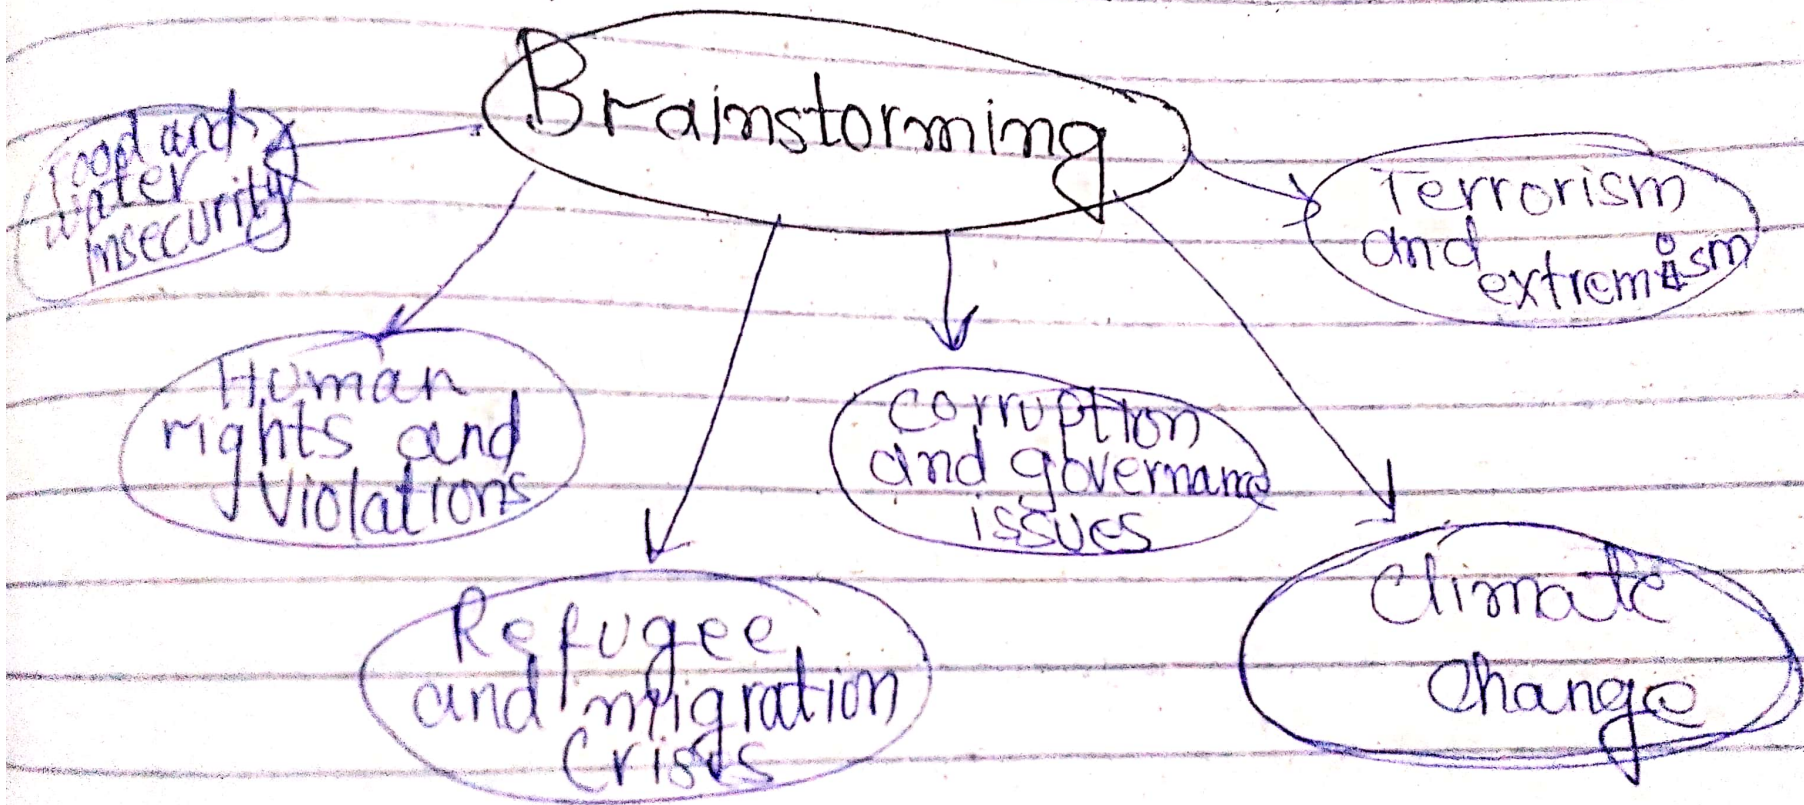 Brainstorming
Food and
water
insecurity
Terrorism
and
extremism
Human
rights and
violations
corruption
and governance
issues
Refugee
and migration
Crisis
Climate
Change